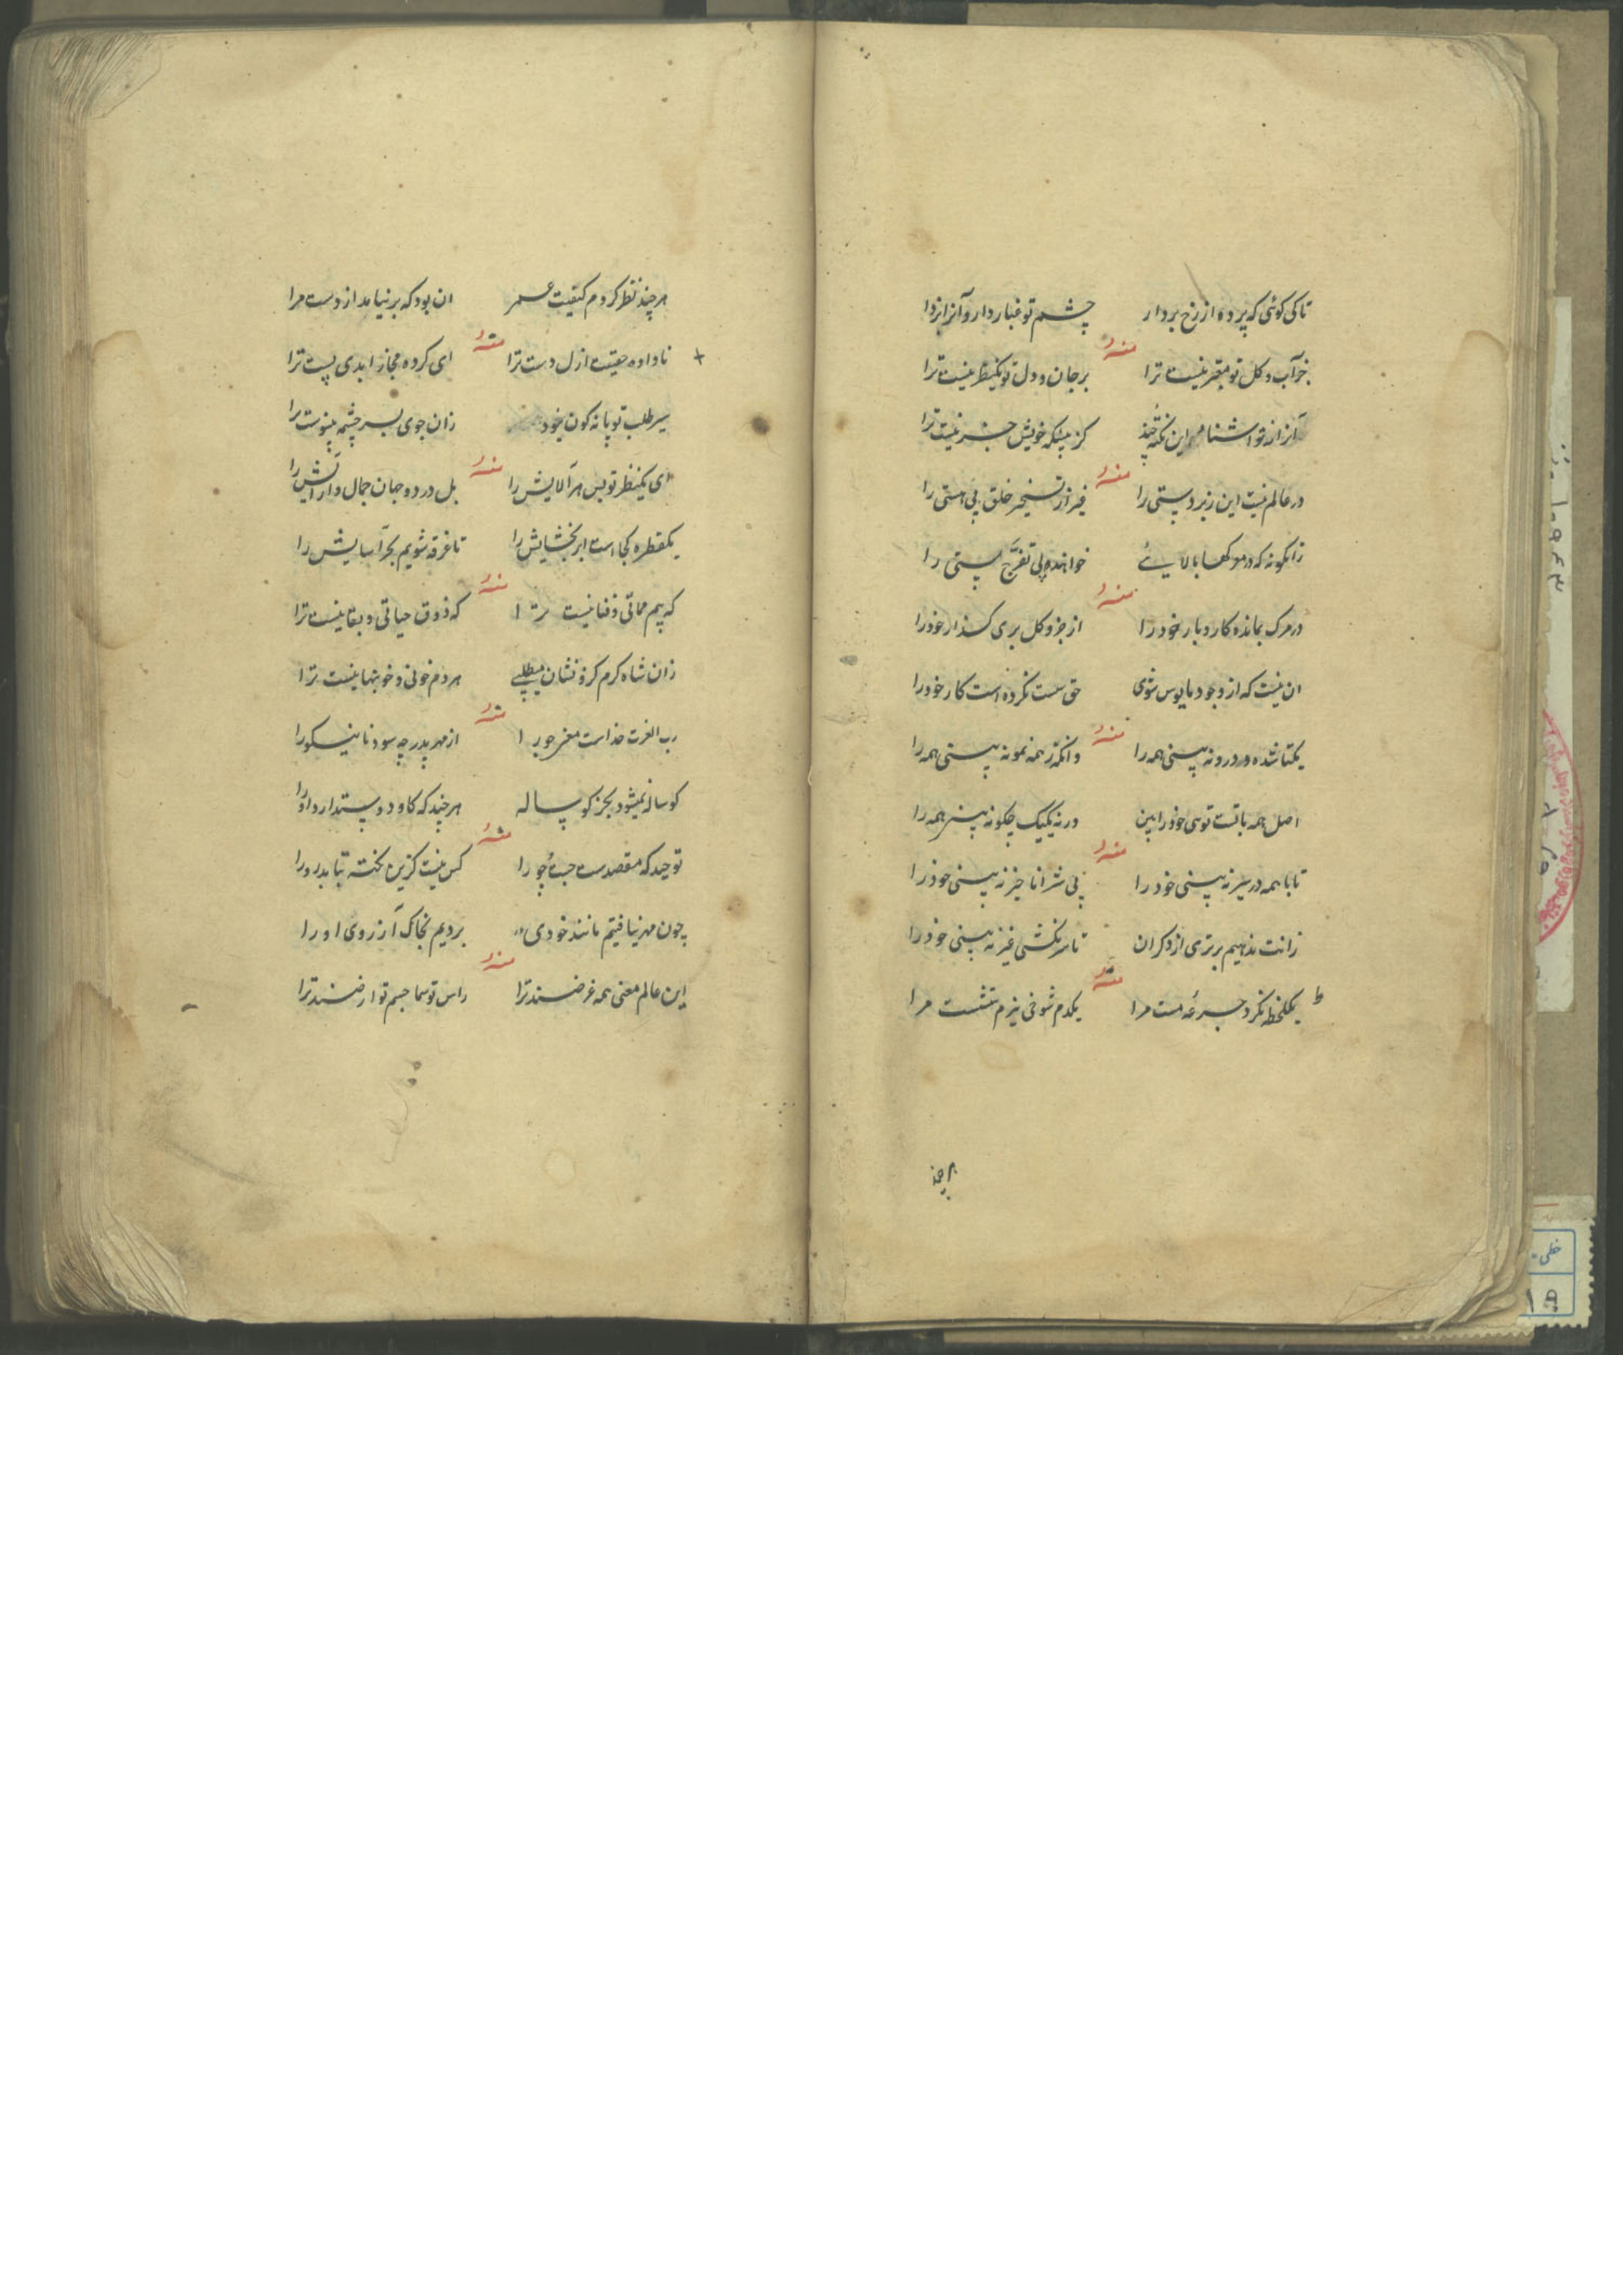 تا کی کوئی که پرده از رخ بردار چشم تو غبار دارد آنرا بزدا
منه
جز آب و کل تو معتبر نیست ترا بر جان و دل تو یکنظر نیست ترا
آنرا از تو اشنا این نکته کز بیشکه خویش خبر نیست ترا
منه
در عالم نیست این زبردستی را غیر از تسخیر خلق بی هستی را
زانکونه که در موکها بالایی خوانند ولی تفرج پستی را
منه
در مرک بمانده کار و بار خود را از جزو کل بری کذار خود را
ان نیست که از وجود مایوس شوی حق سست نکرده است کار خود را
منه
یکتا شده در درونه بینی همه را وانکه ز همه نمونه بینی همه را
اصل همه با تست توئی خود را بین ورنه یکیک چکونه بینی همه را
منه
تا با همه در سیر نه بینی خود را بی شر انا خیر نه بینی خود را
زانت ندهیم برتری از دکران تا سر نکشی غیر نه بینی خود را
منه
یکلحظه نکرد جرعه مست مرا یکدم شوخی بزم ننشست مرا
هر چند
هر چند نظر کردم کیفیت عمر ان بود که بر نیامد از دست مرا
منه
نا داده حقیقت ازل دست ترا ای کرده مجاز ابدی پست ترا
سر طلب تو پا نه کون خود زان جوی بسر چشمه پیوست را
منه
ای یکنظر تو بس هر آلایش را بل در دو جهان جمال و آرایش را
یکقطره کجا است ابر بخشایش را تا غرقه شویم بحر آسایش را
منه
که بیم مماتی و فنا نیست ترا که ذوق حیاتی و بقا نیست ترا
زان شاه کرم کرو نشان میطلبی هر دم خونی و خونبها نیست ترا
منه
رب العزت خداست مغز جو را از مهر پدر چه سود نا نیکو را
کوساله نمیشود بجز کوساله هر چند که کاو دوستدارد او را
منه
توحید که مقصدست جوئجو را کس نیست کزین نکته بتابد رو را
چون مهر نیافتیم مانند خودی بردیم بخاک آرزوی او را
منه
این عالم معنی همه غرضند ترا راس تو سما جسم تو ارضند ترا